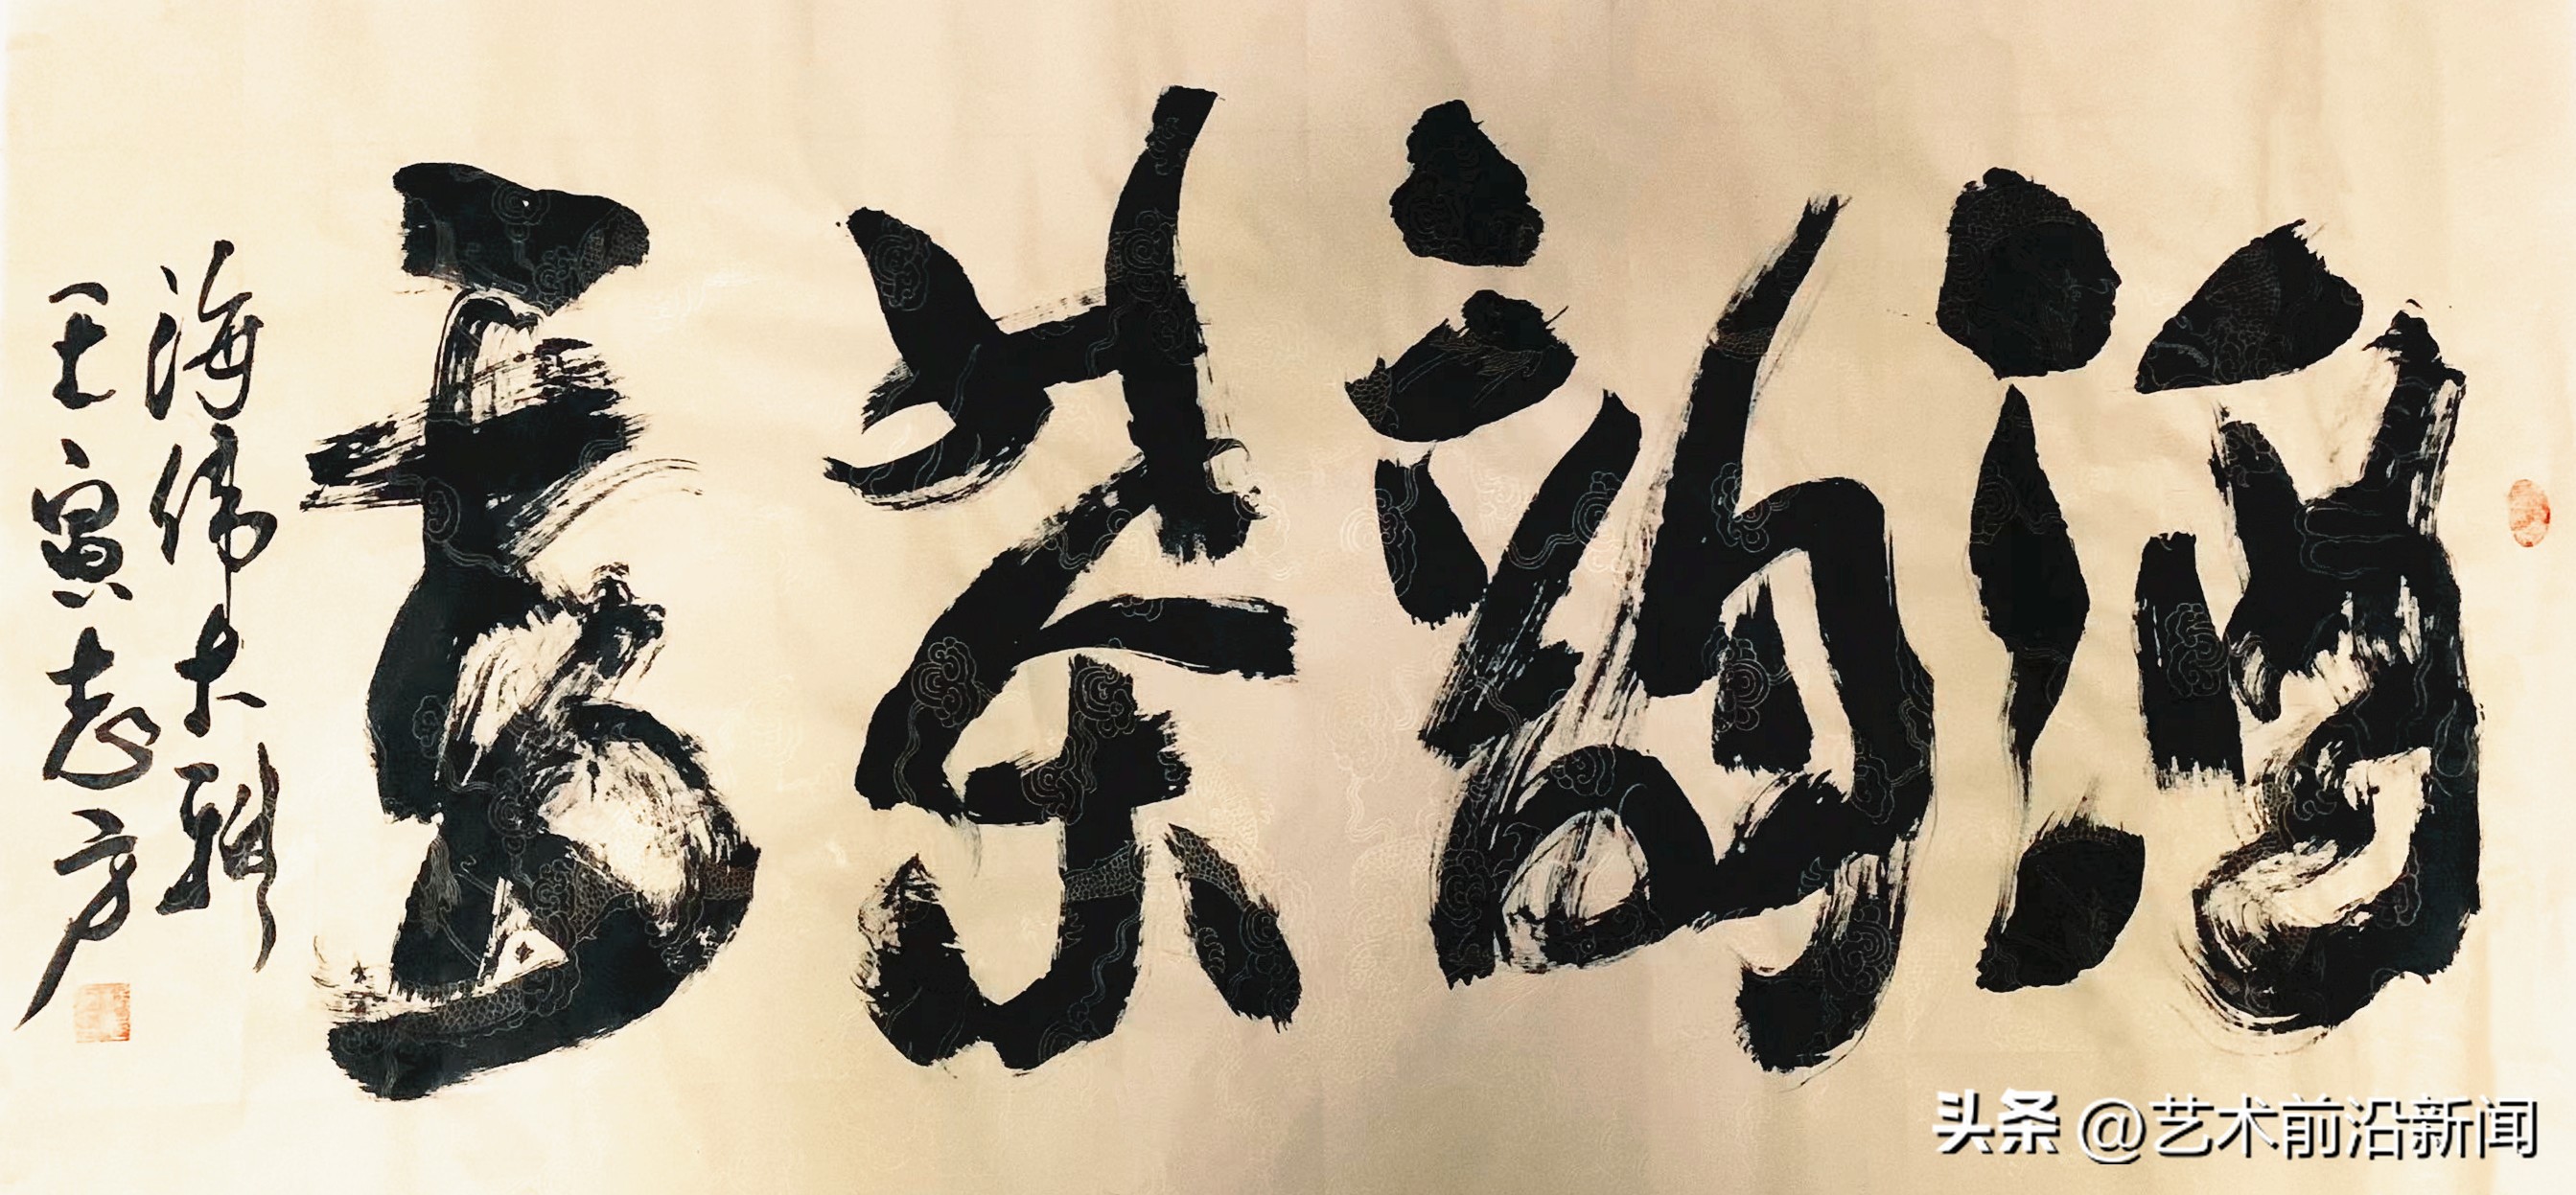 酒韵茶香
海偉大雅
壬寅志方
头条 @艺术前沿新闻